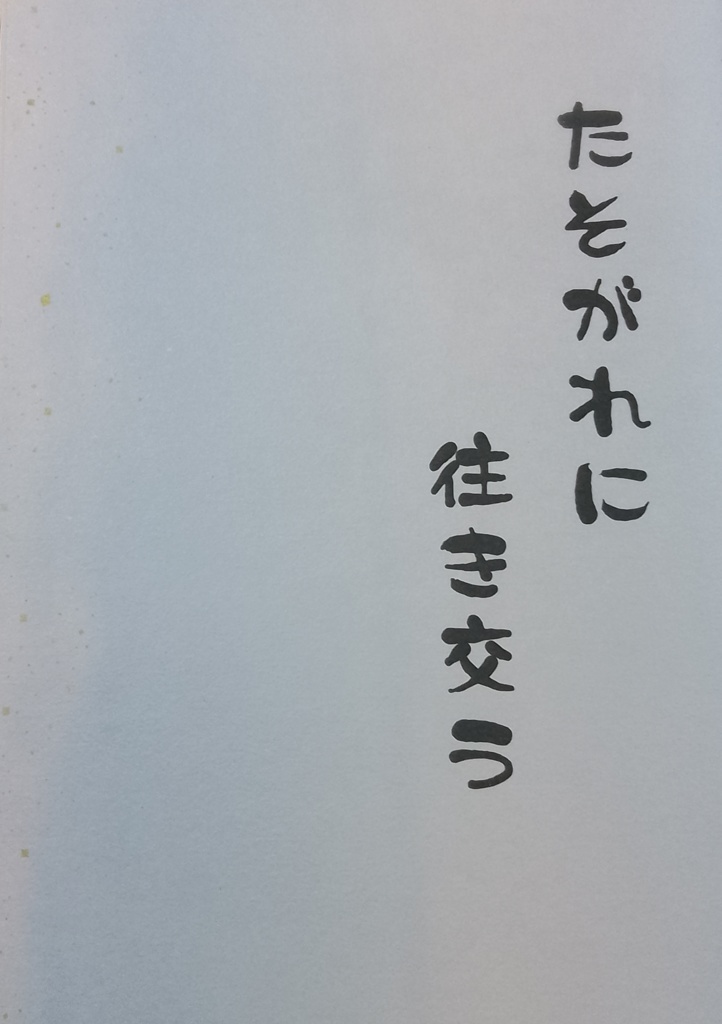 たそがれに
往き交う